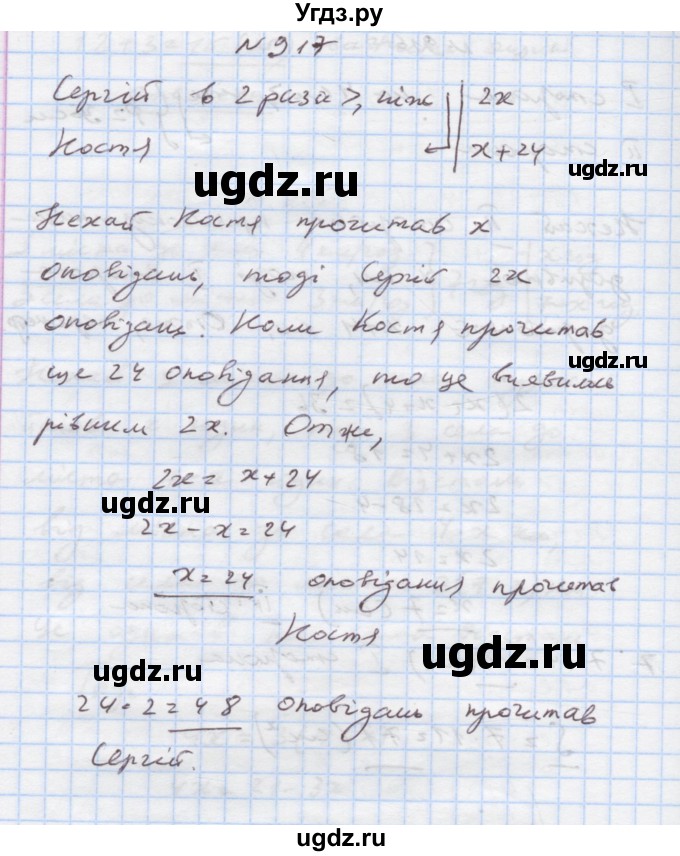 Угдз.ру
N 917
Сергій в 2 раза >, ніж | 2x
Костя | x+24
ugdz.ru
ugdz.ru
Нехай Костя прочитав x
оповідань, тоді Сергій 2x
оповідань. Коли Костя прочитав
ugdz.ru
ще 24 оповідання, то це виявилось
рівним 2x. Отже,
2x = x + 24
ugdz.ru
2x - x = 24
x = 24 оповідання прочитав
Костя
ugdz.ru
ugdz.ru
24 · 2 = 48 оповідань прочитав
Сергій.
ugdz.ru
ugdz.ru